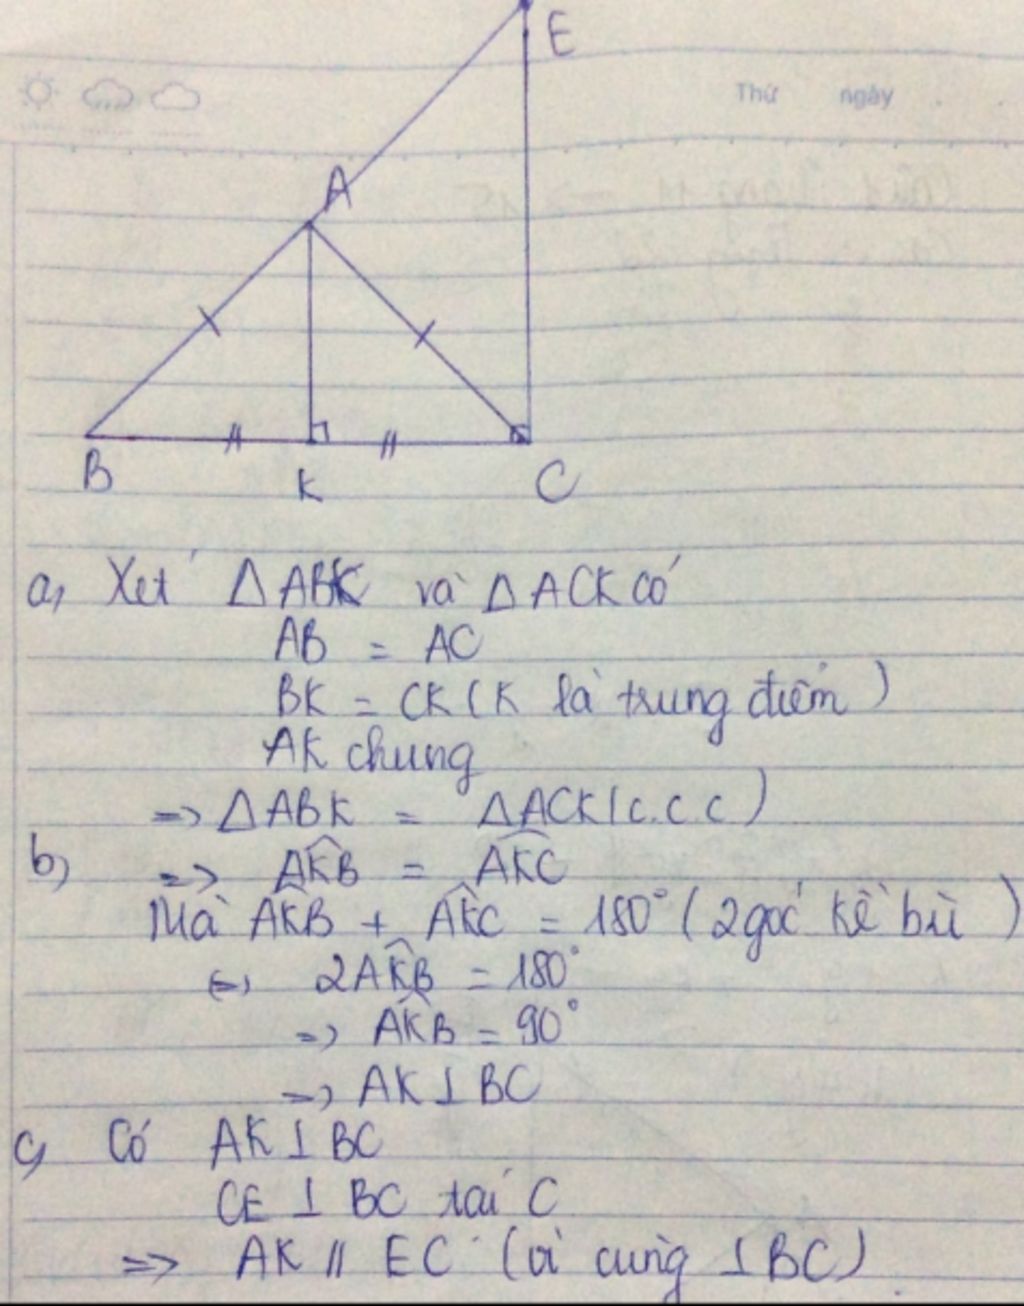 E
Thứ ngày
A
B K C
a, Xét ΔABK và ΔACK có
AB = AC
BK = CK (K là trung điểm)
AK chung
=> ΔABK = ΔACK (c.c.c)
b) => AKB = AKC
Mà AKB + AKC = 180° (2 góc kề bù)
<=> 2AKB = 180°
=> AKB = 90°
=> AK ⊥ BC
c, Có AK ⊥ BC
CE ⊥ BC tại C
=> AK // EC (vì cùng ⊥ BC)